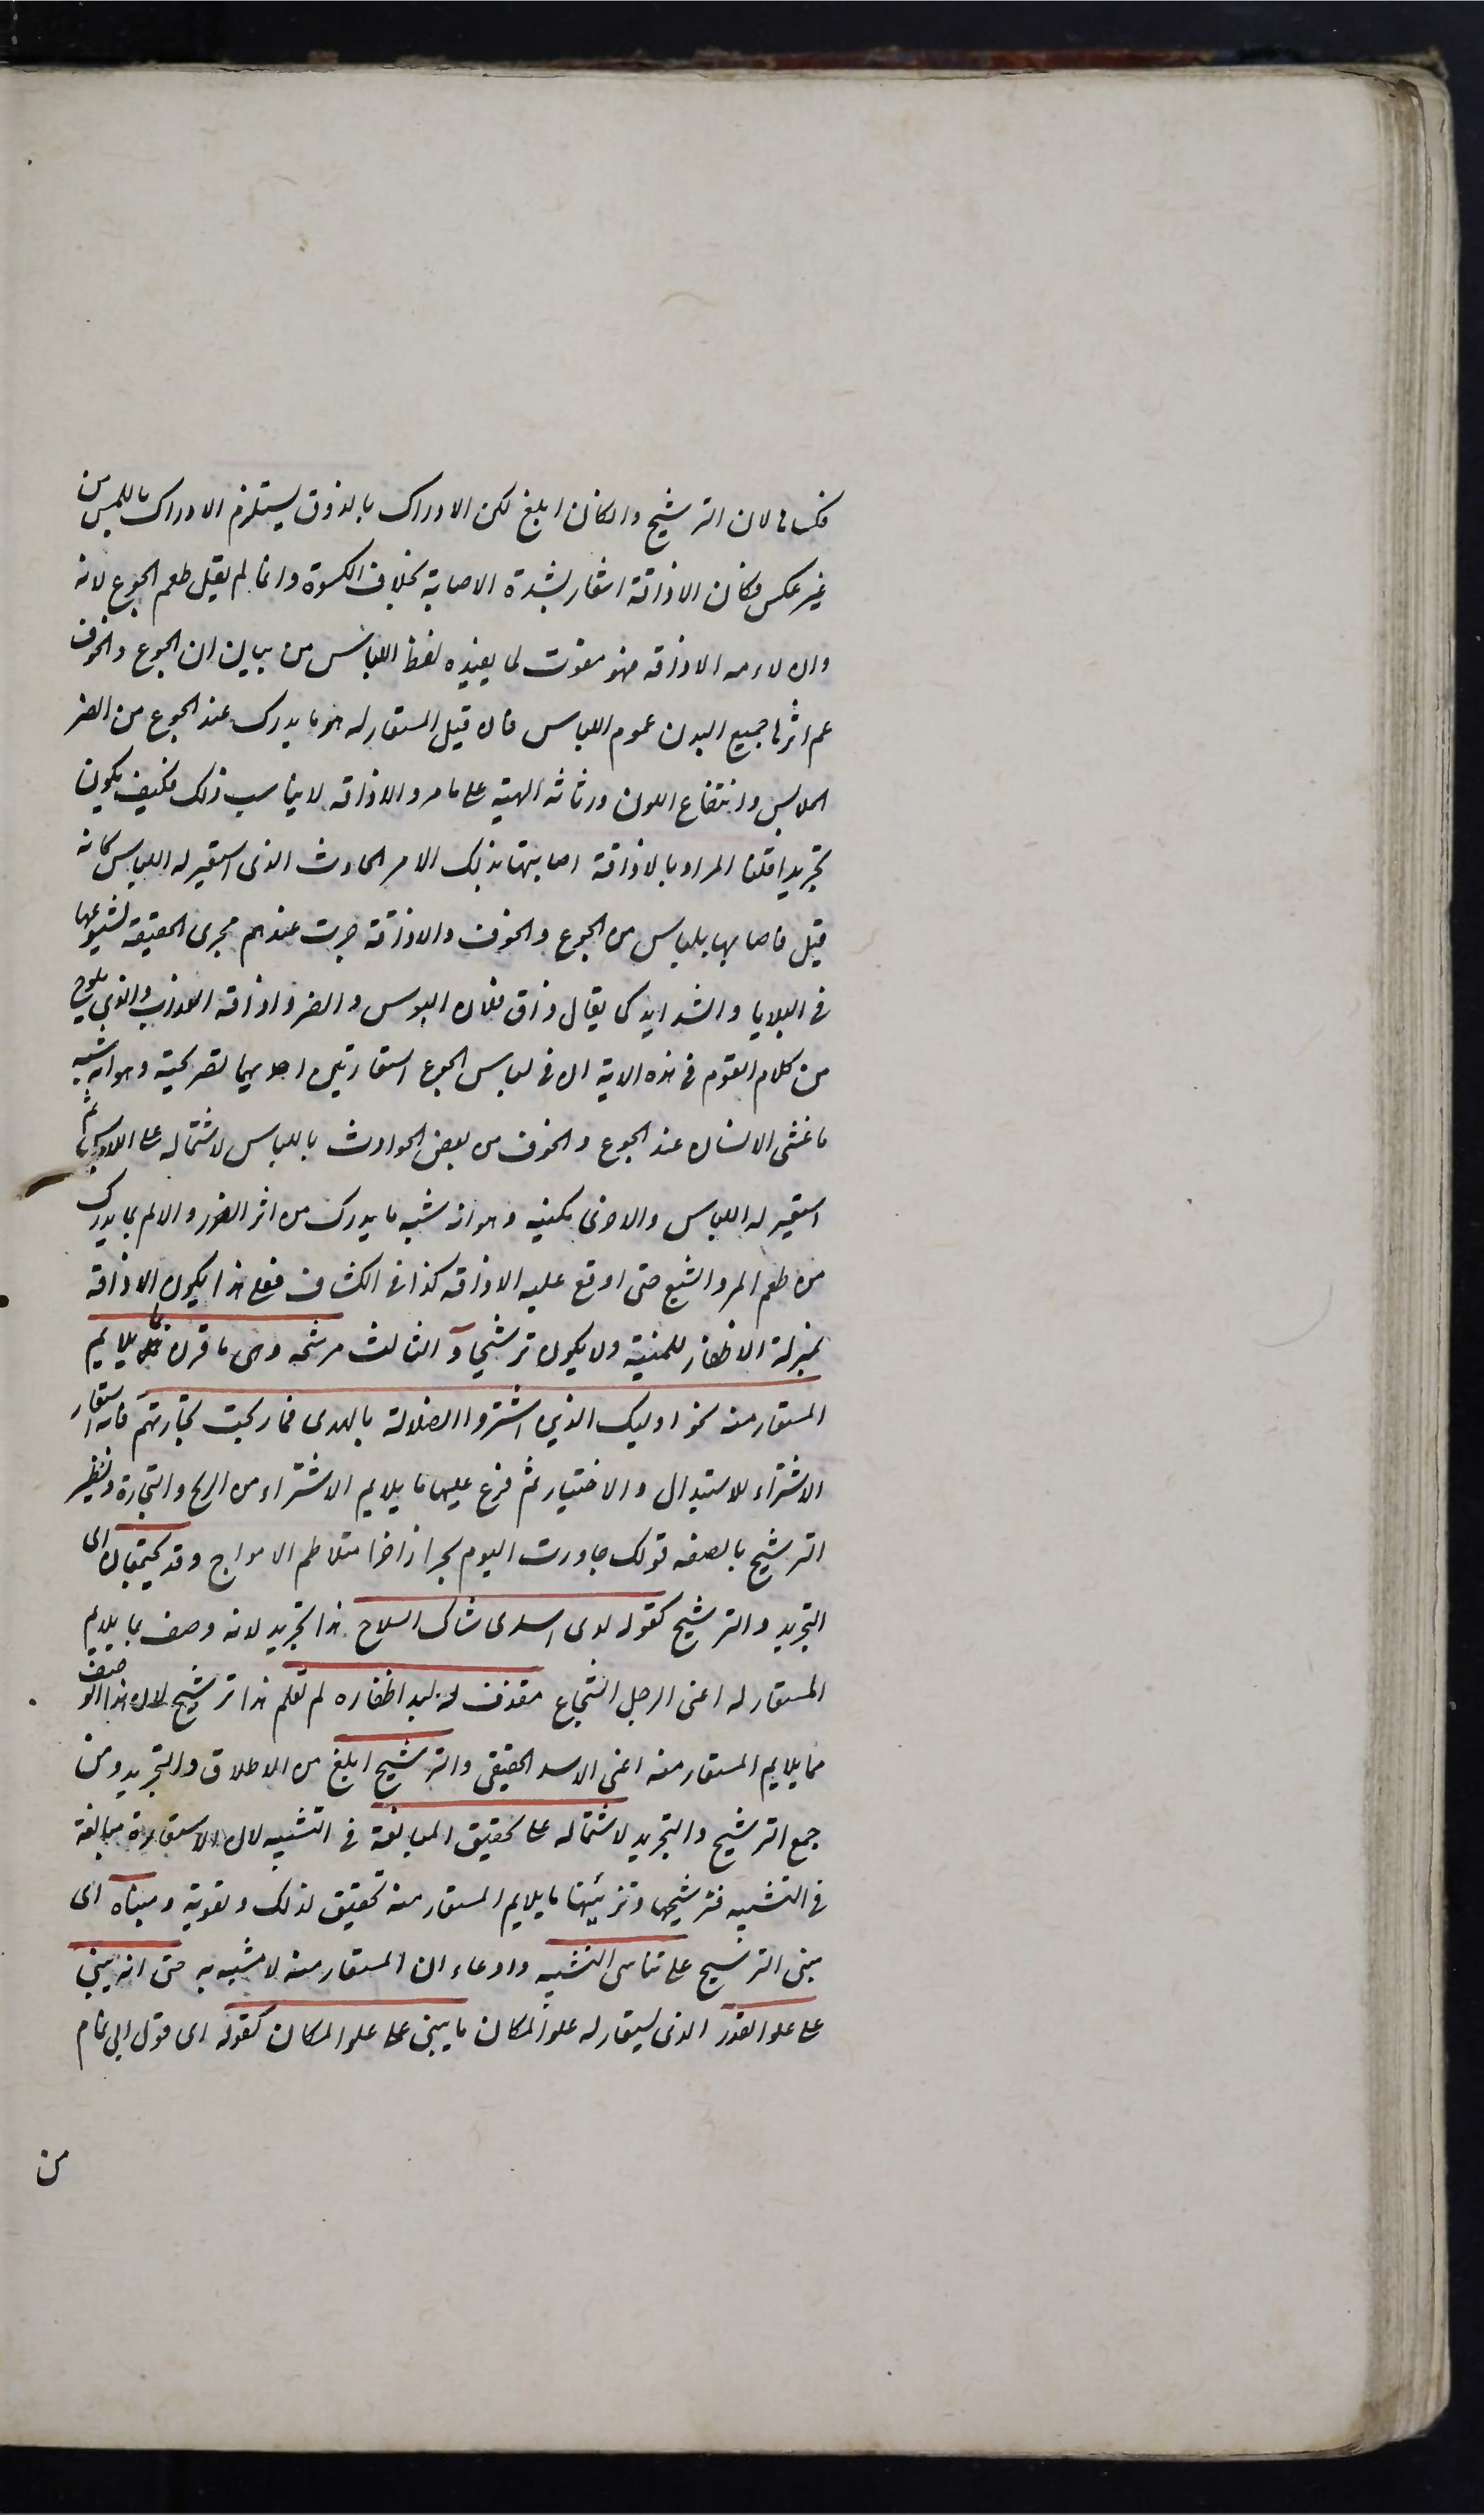 فكساها لان الترشيح وان كان ابلغ لكن الادراك بالذوق يستلزم الادراك باللمس من
غير عكس فكان الاذاقة اشعار بشدة الاصابة بخلاف الكسوة وانما لم يقل طعم الجوع لانه
وان لاءمه الاذاقه فهو مفوت لما يفيده لفظ اللباس من بيان ان الجوع والخوف
عم اثرها جميع البدن عموم اللباس فان قيل المستعار له هو ما يدرك عند الجوع من الضر
الملابس وانتفاع اللون ورثاثه الهيئة على ما مر والاذاقه لا يناسب ذلك فكيف يكون
تجريدا قلنا المراد بالاذاقة اصابتها بذلك الامر الحادث الذى استعير له اللباس كانه
قيل فاصابها بلباس من الجوع والخوف والاذاقة جرت عندهم مجرى الحقيقة لشيوعها
فى البلايا والشدايد كما يقال ذاق فلان البوس والضر واذاقه العذاب والذى يلوح
من كلام القوم فى هذه الاية ان فى لباس الجوع استعارتين احديهما تصريحية وهو انه شبه
ما غشى الانسان عند الجوع والخوف من بعض الحوادث باللباس لاشتماله على اللابس ثم
استعير له اللباس والاخرى مكنيه وهو انه شبه ما يدرك من اثر الضرر والالم بما يدرك
من طعم المر والبشع حتى اوقع عليه الاذاقه كذا فى الكشاف فعلى هذا يكون الاذاقه
بمنزلة الاظفار للمنية ولا يكون ترشيحا و الثالث مرشحه وهى ما قرن بما يلايم
المستعار منه نحو اوليك الذين اشتروا الضلالة بالهدى فما ربحت تجارتهم فانه استعار
الاشتراء للاستبدال والاختيار ثم فرع عليها ما يلايم الاشتراء من الربح والتجارة ونظير
الترشيح بالصفه قولك جاورت اليوم بحرا زاخرا متلاطم الامواج وقد يجتمعان اى
التجريد والترشيح كقوله لدى اسد شاكى السلاح هذا تجريد لانه وصف بما يلايم
المستعار له اعنى الرجل الشجاع مقذف له لبد اظفاره لم تقلم هذا ترشيح لان هذا الوصف
مما يلايم المستعار منه اعنى الاسد الحقيقى والترشيح ابلغ من الاطلاق والتجريد ومن
جمع الترشيح والتجريد لاشتماله على تحقيق المبالغة فى التشبيه لان الاستعارة مبالغة
فى التشبيه فترشيحها وتزيينها بما يلايم المستعار منه تحقيق لذلك وتقوية ومبناه اى
مبنى الترشيح على تناسى التشبيه وادعاء ان المستعار منه لا مشبه به حتى انه يبنى
على علو القدر الذى يستعار له علو المكان ما يبنى على علو المكان كقوله اى قول ابى تمام
من